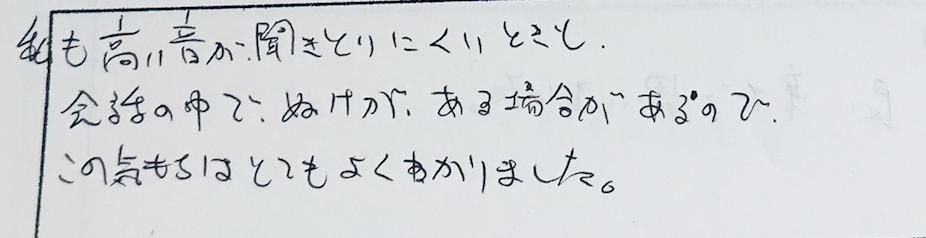 私も高い音が聞きとりにくいときと、
会話の中で、ぬけが、ある場合があるので、
この気もちはとてもよくわかりました。